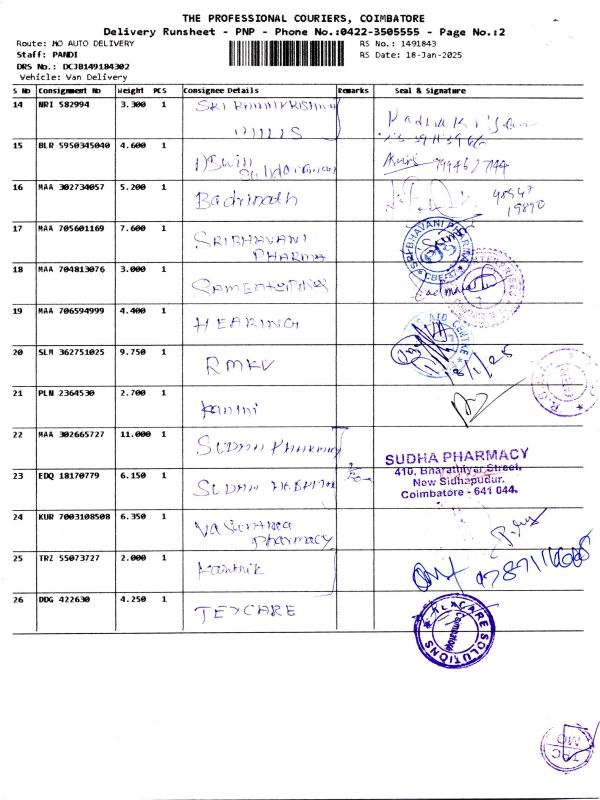 THE PROFESSIONAL COURIERS, COIMBATORE
Delivery Runsheet - PNP - Phone No.:0422-3505555 - Page No.:2
Route: MO AUTO DELIVERY
RS No.: 1491843
Staff: PANDI
RS Date: 18-Jan-2025
DRS No.: DCJB149184302
Vehicle: Van Delivery
S No Consignment No Weight PCS Consignee Details Remarks Seal & Signature
14 NRI 582994 3.300 1 SRI RAMAKRISHNA MILLS
15 BLR 5950345040 4.600 1
16 MAA 302734057 5.200 1 Badrinath
17 MAA 705601169 7.600 1 SRIBHAVANI PHARMA
SRI BHAVANI PHARMA
18 MAA 704813076 3.000 1
19 MAA 706594999 4.400 1 HEARING
AID CENTRE
20 SLM 362751025 9.750 1 RMKV 18/1/25
21 PLN 2364530 2.700 1
22 MAA 302665727 11.000 1 SUDHA PHARMACY
SUDHA PHARMACY
410, Bharathiyar Street,
New Sidhapudur,
Coimbatore - 641 044.
23 EDQ 18170779 6.150 1 SUDHA HOSPITAL
24 KUR 7003108508 6.350 1 Vasantha pharmacy
25 TRZ 55073727 2.000 1 Karthik
26 DDG 422630 4.250 1 TEXCARE
TEXCARE SOLUTIONS
Coimbatore
TPC
MO